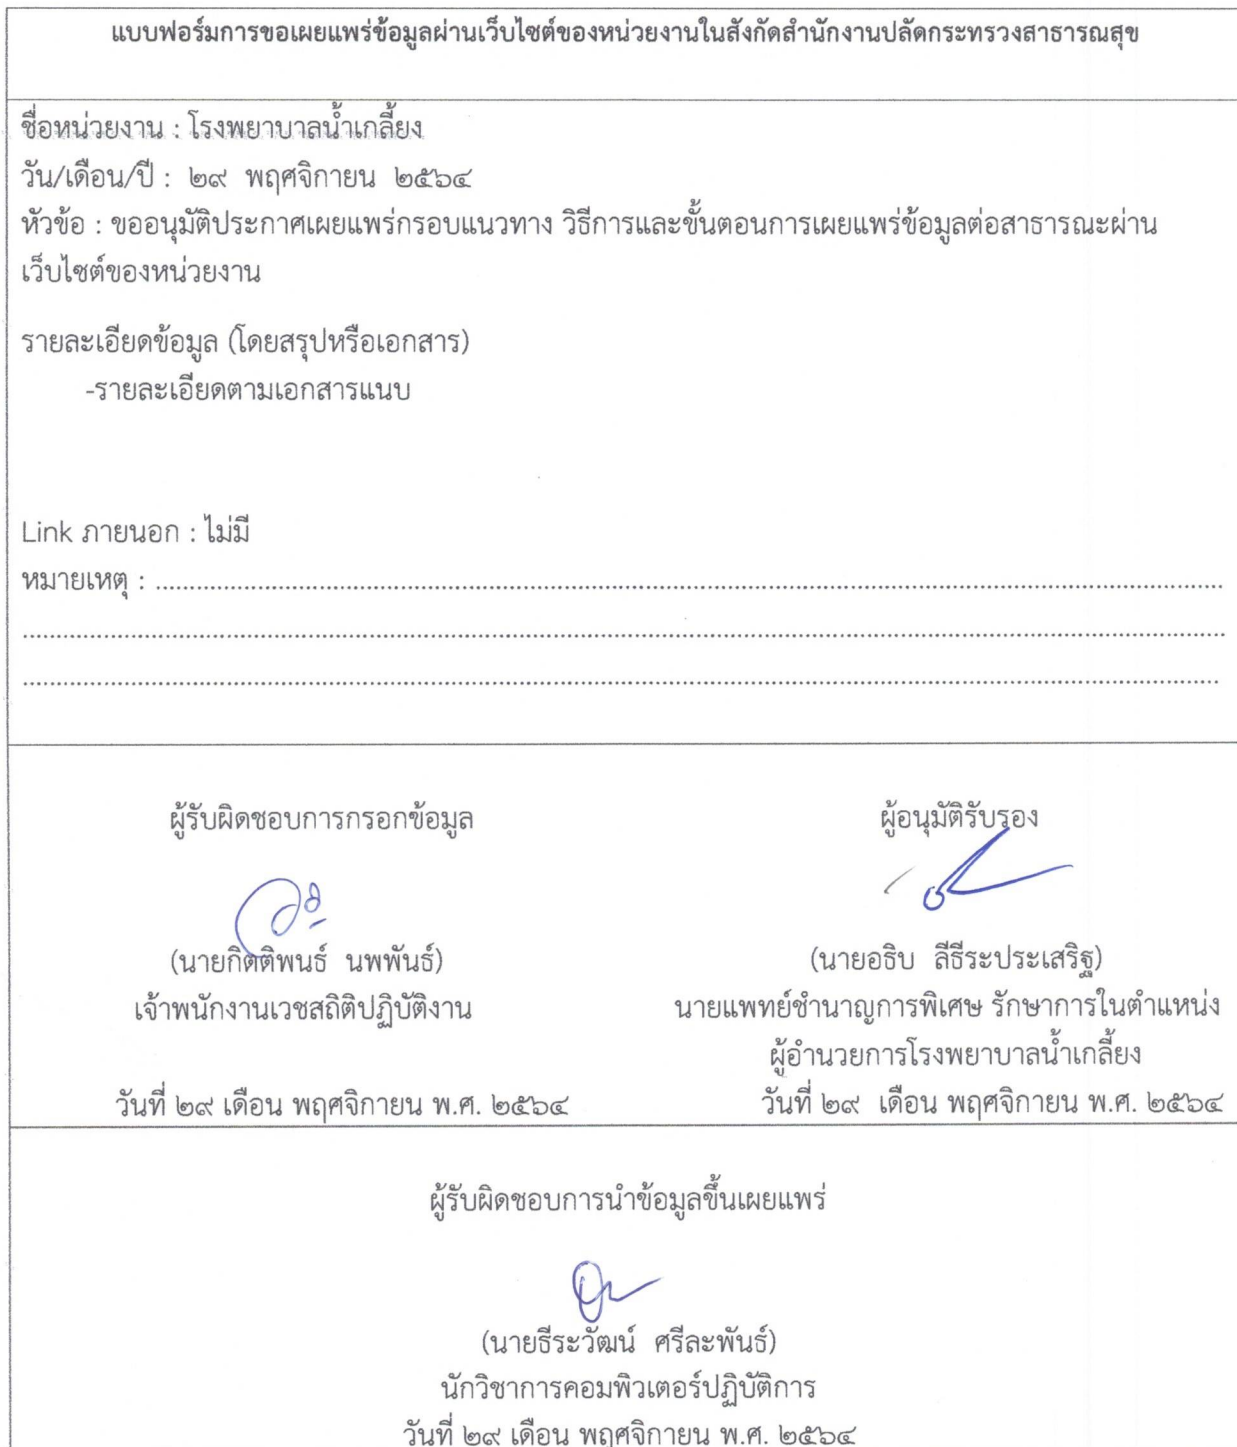 แบบฟอร์มการขอเผยแพร่ข้อมูลผ่านเว็บไซต์ของหน่วยงานในสังกัดสำนักงานปลัดกระทรวงสาธารณสุข
ชื่อหน่วยงาน : โรงพยาบาลน้ำเกลี้ยง
วัน/เดือน/ปี : ๒๙ พฤศจิกายน ๒๕๖๔
หัวข้อ : ขออนุมัติประกาศเผยแพร่กรอบแนวทาง วิธีการและขั้นตอนการเผยแพร่ข้อมูลต่อสาธารณะผ่าน
เว็บไซต์ของหน่วยงาน
รายละเอียดข้อมูล (โดยสรุปหรือเอกสาร)
-รายละเอียดตามเอกสารแนบ
Link ภายนอก : ไม่มี
หมายเหตุ : ........................................................................
........................................................................
........................................................................
ผู้รับผิดชอบการกรอกข้อมูล ผู้อนุมัติรับรอง
(นายกิตติพนธ์ นพพันธ์) (นายอธิบ ลีธีระประเสริฐ)
เจ้าพนักงานเวชสถิติปฏิบัติงาน นายแพทย์ชำนาญการพิเศษ รักษาการในตำแหน่ง
ผู้อำนวยการโรงพยาบาลน้ำเกลี้ยง
วันที่ ๒๙ เดือน พฤศจิกายน พ.ศ. ๒๕๖๔ วันที่ ๒๙ เดือน พฤศจิกายน พ.ศ. ๒๕๖๔
ผู้รับผิดชอบการนำข้อมูลขึ้นเผยแพร่
(นายธีระวัฒน์ ศรีละพันธ์)
นักวิชาการคอมพิวเตอร์ปฏิบัติการ
วันที่ ๒๙ เดือน พฤศจิกายน พ.ศ. ๒๕๖๔